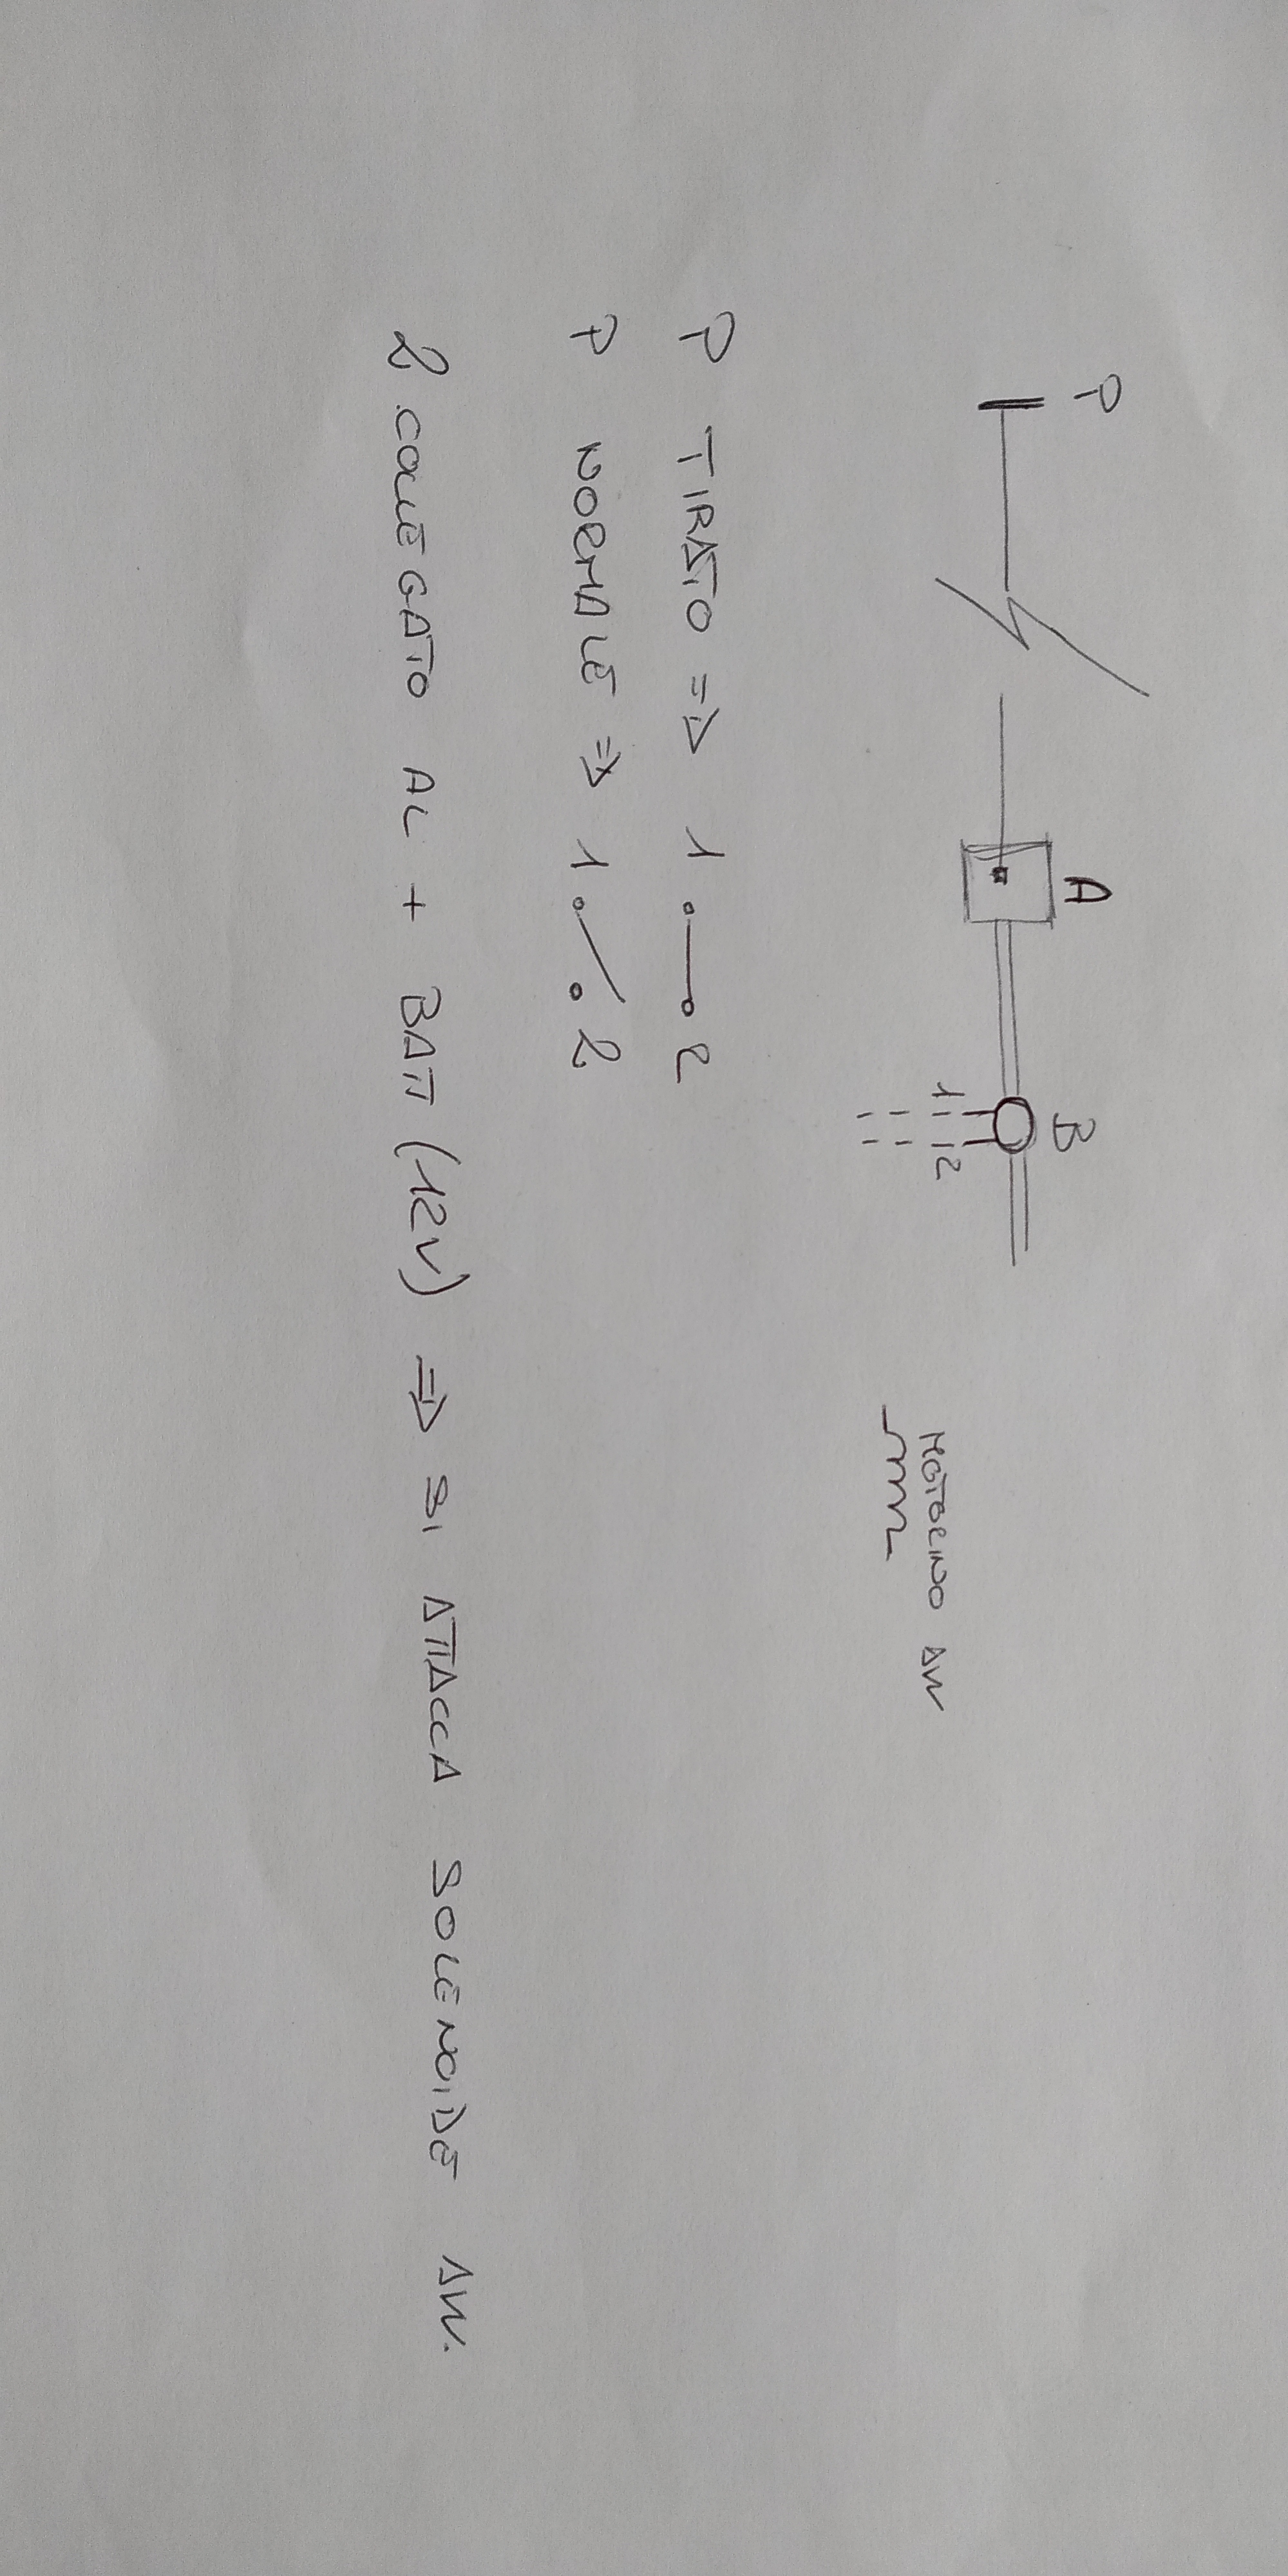 P
A
B
1 2
MOTORINO AV
P TIRATO => 1 2
P NORMALE => 1 2
2 COLLEGATO AL + BATT (12V) => SI ATTACCA SOLENOIDE AV.